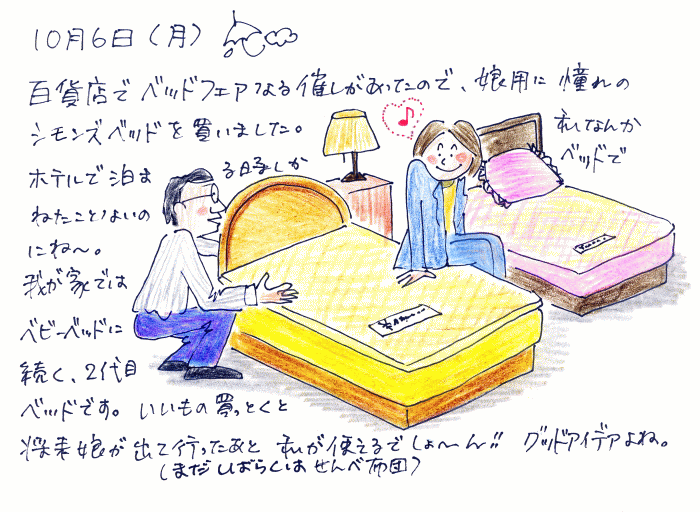 10月6日（月）
百貨店でベッドフェアなる催しがあったので、娘用に憧れの
シモンズベッドを買いました。 私なんか
ホテルで泊まる時しか ベッドで
ねたことないの
にね〜。
我が家では
ベビーベッドに
続く、2代目
ベッドです。いいもの買っとくと
将来娘が出て行ったあと 私が使えるでしょ〜ん!! グッドアイデアよね。
（まだしばらくはせんべ布団）